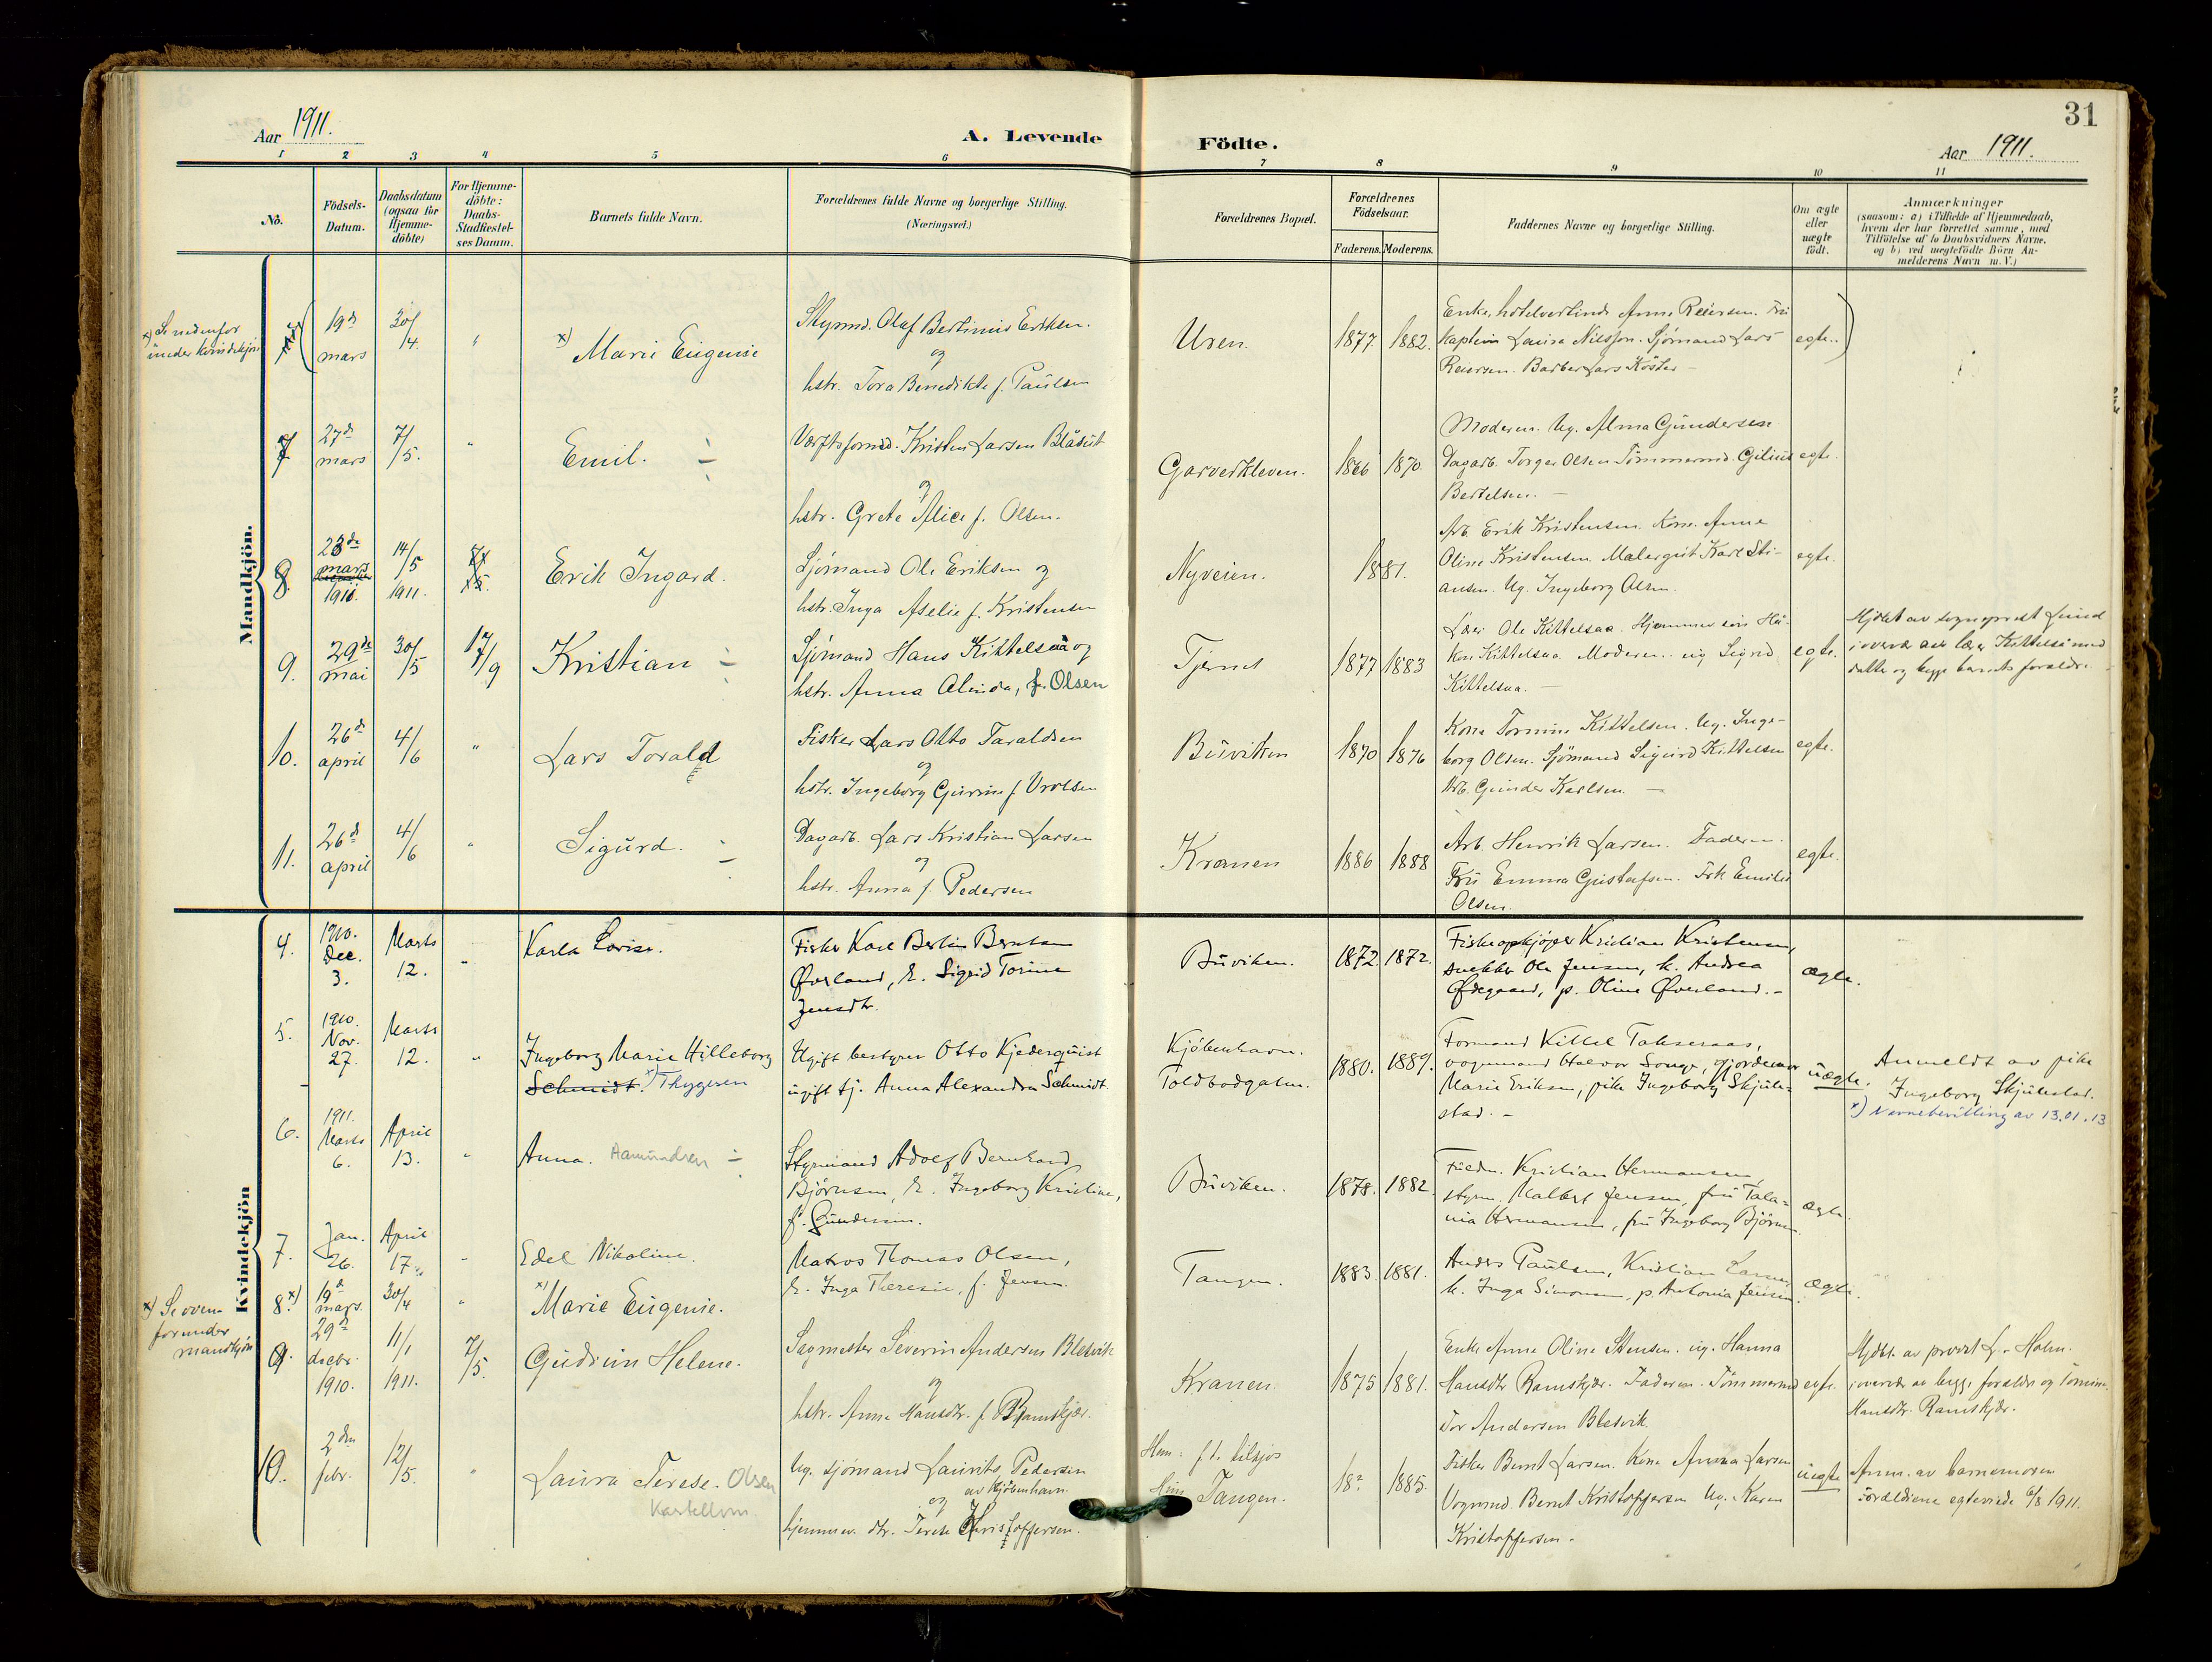 31
Aar 1911.
A. Levende
Födte.
Aar 1911.
1 2 3 4 5 6 7 8 9 10 11
No.
Födsels-
Datum.
Daabsdatum
(ogsaa for
Hjemme-
döbte)
For Hjemme-
döbte:
Daabs-
Stadfæstel-
ses Datum.
Barnets fulde Navn.
Forældrenes fulde Navne og borgerlige Stilling.
(Næringsvei.)
Forældrenes Bopæl.
Forældrenes
Födselsaar.
Faderens. Moderens.
Faddernes Navne og borgerlige Stilling.
Om ægte
eller
uægte
födt.
Anmærkninger
(saasom: a) i Tilfælde af Hjemmedaab,
hvem der har forrettet samme, med
Tilföielse af to Daabsvidners Navne,
og b) ved uægtefödte Börn An-
melderens Navn m. V.)
Mandkjön.
x) Se nedenfor
under kvindekjön
19d
mars
30/4.
"
x) Marie Eugenie
Styrmd. Olaf Bertinius Eriksen
og
hstr. Tora Benedikte f. Paulsen
Uren.
1877. 1882.
Enke, hotelvertinde Anne Reiersen. Fru
kaptein Laura Nilssen. Sjömand Lars
Reiersen. Barber Lars Köster –
egte.
7
27d
mars
7/5.
"
Emil.
Værftsformd. Kristen Larsen Blåsut
og
hstr. Grete Alice f. Olsen.
Garverkleven.
1866 1870
Moderen. Ug. Alma Gundersen
Dagarb. Torger Olsen Tömmermd. Gilius
Bertelsen. –
egte.
8.
23de
mars
1911.
14/5
1911.
Erik Ingard.
Sjömand Ole Eriksen og
hstr. Inga Aselie f. Kristensen
Nyveien.
1881.
Arb. Erik Kristensen. Kone Anne
Oline Kristensen. Malergut Karl Sti-
ansen. Ug. Ingeborg Olsen.
egte.
9.
29de
mai
30/5
17/9
Kristian
Sjömand Hans Kittelsaa og
hstr. Anna Alinda, f. Olsen
Tjenna
1877 1883
Lær. Ole Kittelsaa. Hjemmev. søn Hå-
kon Kittelsaa. Moderen. ug Sigrid
Kittelsaa. –
egte.
Hjdöbt av sogneprest Lund
i overvær av lær. Kittelså med
datter og begge barnets foreldre.
10.
26d
april
4/6
"
Lars Torald
Fisker Lars Otto Taraldsen
og
hstr. Ingeborg Gurine f Vrolsen
Buviken
1870 1876
Kone Tomine Kittelsen. Ug. Inge-
borg Olsen. Sjömand Sigurd Kittelsen
Arb. Gunder Karlsen. –
egte.
11.
26d
april
4/6
"
Sigurd.
Dagarb. Lars Kristian Larsen
og
hstr. Anna f Pedersen
Kranen
1886 1888
Arb. Henrik Larsen. Faderen.
Fru Emma Gustafsen. Frk Emilie
Olsen.
egte.
Kvindekjön
4.
1910.
Dec.
3.
Marts
12.
"
Karla Lovise.
Fisker Karl Bertin Berntsen
Øverland, h. Sigrid Torine
Jensdtr.
Buviken.
1872. 1872.
Fiskeopkjöper Kristian Kristensen,
snekker Ole Jensen, k. Andrea
Ødegaard, p. Oline Øverland. –
ægte.
5.
1910.
Nov.
27.
Marts
12.
"
Ingeborg Marie Hilleborg
Schmidt. x) Thygesen
Ugift bestyrer Otto Kjederquist
ugift tj. Anna Alexandra Schmidt.
Kjöbenhavn.
Toldbodgaten.
1880. 1889.
Formand Kittel Takseraas,
vognmand Halvor Songe, gjordemor
Marie Eriksen, pike Ingeborg Skjule-
stad. –
uægte.
Anmeldt av pike
Ingeborg Skjulestad.
x) Navnebevilling av 13.01.13
6.
1911.
Marts
6.
April
13.
"
Anna. Aamundsen
Styrmand Adolf Bernhard
Björnsen, h. Ingeborg Kristine,
f. Gundersen.
Buviken.
1878. 1882.
Kristian Hermansen,
styrm. Malbert Jensen, fru Tale-
nia Hermansen, fru Ingeborg Björnsen
ægte.
7.
Jan.
26.
April
17.
"
Edel Nikoline.
Matros Thomas Olsen,
h. Inga Theresie, f. Jensen.
Tangen.
1883. 1881.
Anders Paulsen, Kristian Larsen,
k. Inga Simonsen, p. Antonia Jensen.
ægte.
x) Se oven-
for under
mandkjön
8. x)
19d
mars.
30/4
"
x) Marie Eugenie.
9.
29d
decbr.
1910.
11/1
1911.
7/5.
Gudrun Helene.
Sagmester Severin Andersen Blesvik
og
hstr. Anne Hansdtr. f Ramskjær.
Kranen.
1875 1881.
Enke Anne Oline Stensen. ug. Hanna
Hansdtr Ramskjær. Faderen. Tömmermd
Tor Andersen Blesvik
egte.
Hjdöbt. av provst L. Holm.
i overvær av begge foreldre og Tomine
Hansdtr. Ramskjær.
10.
2den
febr.
12/5.
"
Laura Terese. Olsen
Kastellvn.
Ug. sjömand Laurits Pedersen
av Kjöbenhavn.
og
hjemmev. dtr. Terese Kristoffersen.
Han: f.t. tilsjös
Hun Tangen.
18? 1885.
Fisker Bernt Larsen. Kone Anna Larsen
Vognmd. Bernt Kristoffersen Ug. Karen
Kristoffersen –
uegte
Anm. av barnemoren
Forældrene egteviede 6/8 1911.